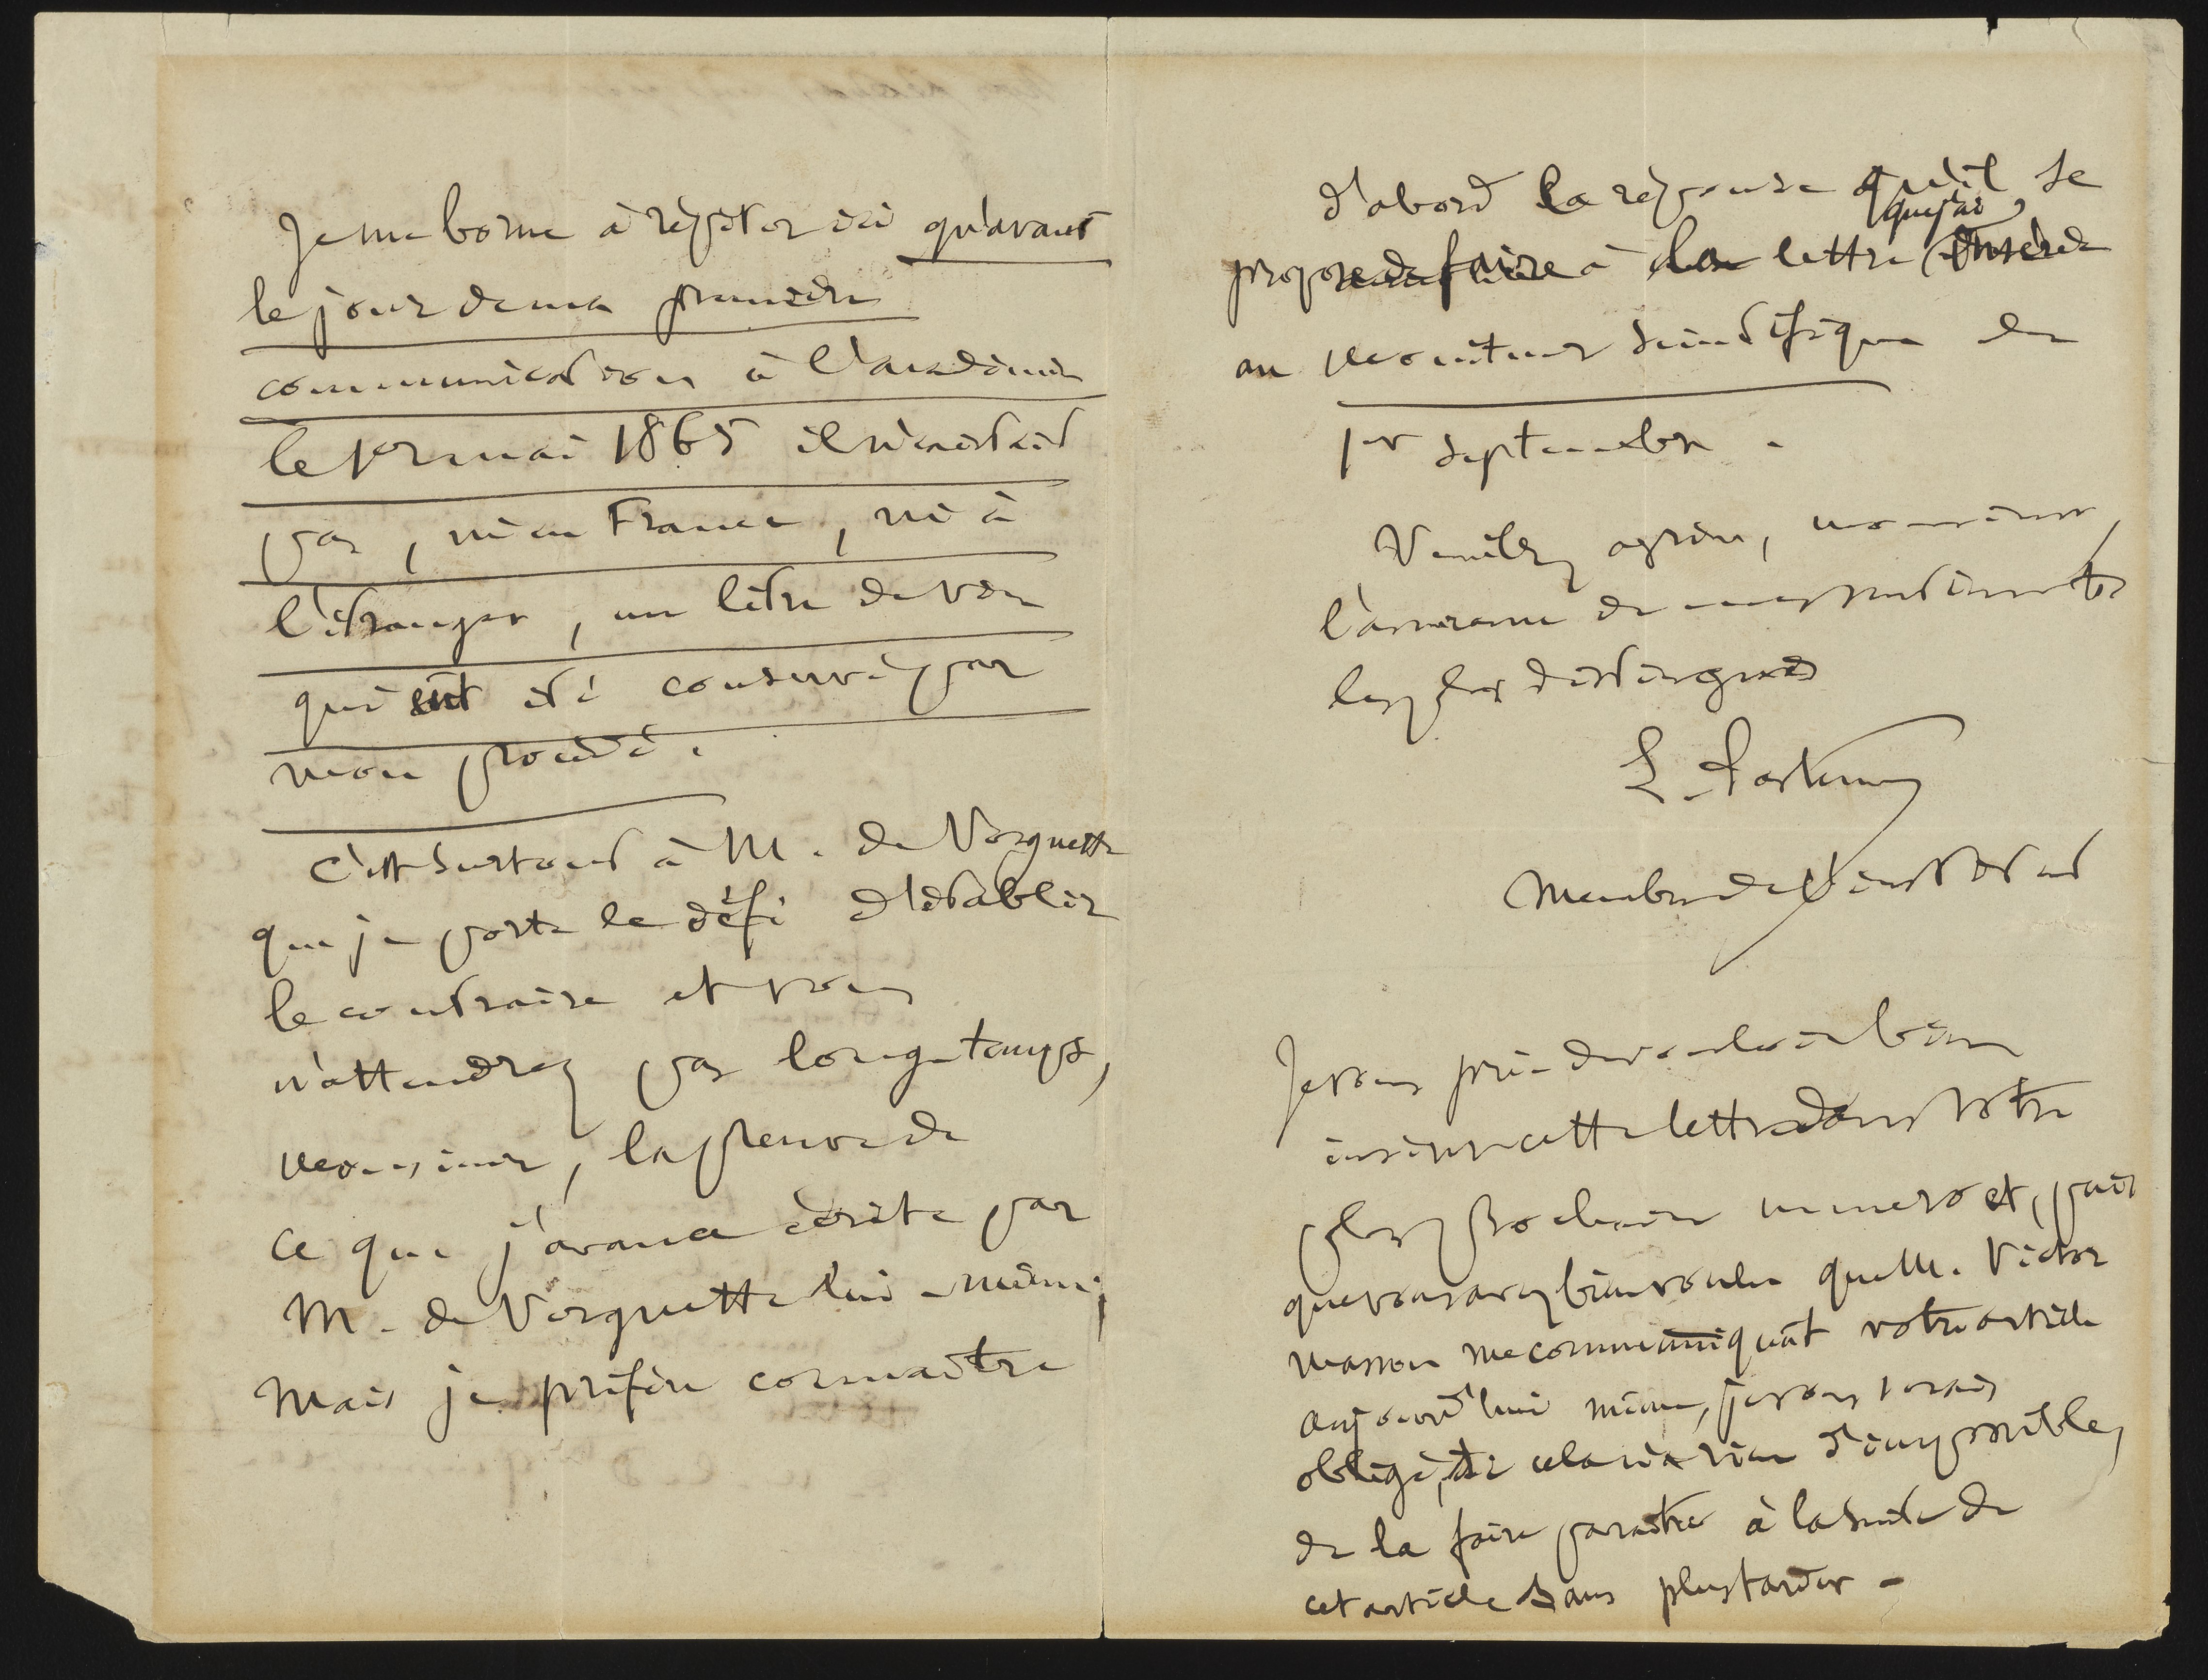 Je me borne à répéter ici qu'avant
le jour de ma première
communication à l'académie
le 1er mai 1865 il n'existait
pas, ni en France, ni à
l'étranger, un litre de vin
qui eût été conservé par
mon procédé.
C'est surtout à M. de Vergnette
que je porte le défi d'établir
le contraire et vous
n'attendrez pas longtemps,
Monsieur, la preuve de
ce que j'avance écrite par
M. de Vergnette lui-même;
Mais je préfère connaître
d'abord la réponse qu'il se
propose de faire à la lettre que j'ai insérée
au Moniteur scientifique du
1er septembre.
Veuillez agréer, monsieur,
l'assurance de mes sentiments
les plus distingués
L. Pasteur
Membre de l'institut
Je vous prie de vouloir bien
insérer cette lettre dans votre
plus prochain numéro et, puis
que vous avez bien voulu que M. Victor
Masson me communiquât votre article
aujourd'hui même, je vous serais
obligé, si cela n'a rien d'impossible,
de la faire paraître à la suite de
cet article sans plus tarder.